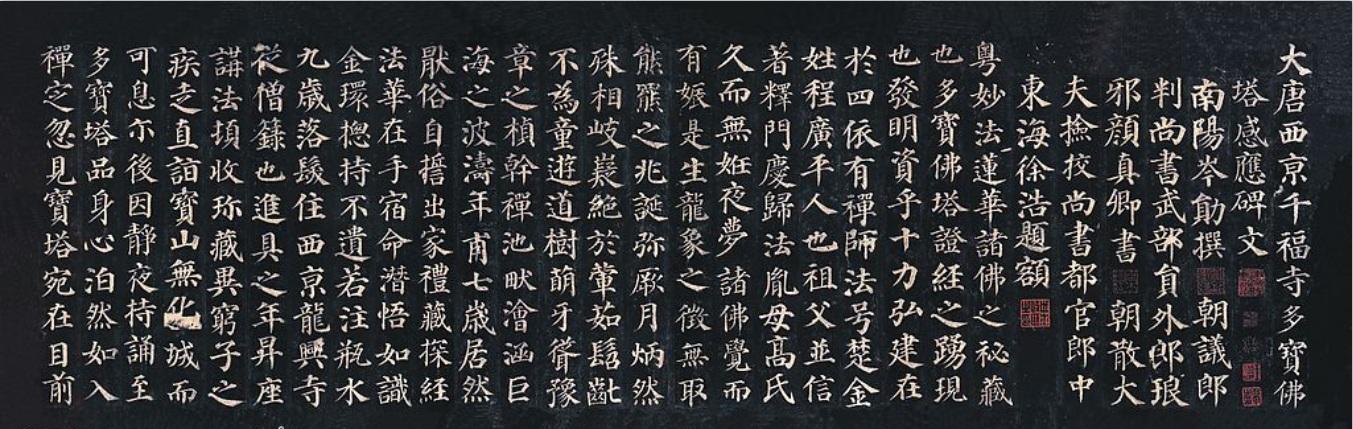 大唐西京千福寺多寶佛
塔感應碑文
南陽岑勛撰　朝議郎
判尚書武部員外郎琅
邪顏真卿書　朝散大
夫撿挍尚書都官郎中
東海徐浩題額
粵妙法蓮華諸佛之秘藏
也多寶佛塔證經之踴現
也發明資乎十力弘建在
於四依有禪師法号楚金
姓程廣平人也祖父並信
著釋門慶歸法胤母高氏
久而無姙夜夢諸佛覺而
有娠是生龍象之徵無取
熊羆之兆誕弥厥月炳然
殊相岐嶷絕於葷茹髫齔
不為童遊道樹萌牙聳豫
章之楨幹禪池畎澮涵巨
海之波濤年甫七歲居然
厭俗自誓出家禮藏探經
法華在手宿命潛悟如識
金環揔持不遺若注瓶水
九歲落髮住西京龍興寺
從僧籙也進具之年昇座
講法頃收珎藏異窮子之
疾走直詣寶山無化城而
可息尒後因靜夜持誦至
多寶塔品身心泊然如入
禪定忽見寶塔宛在目前